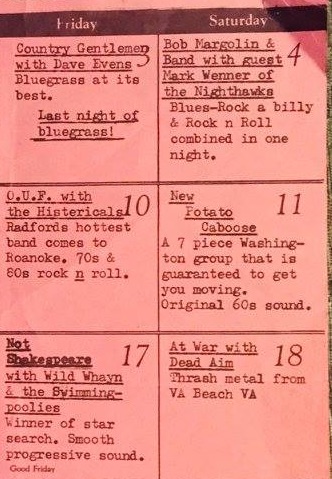 Friday
Saturday
Country Gentlemen 3
with Dave Evens
Bluegrass at its
best.
Last night of
bluegrass!
Bob Margolin &
Band with guest 4
Mark Wenner of
the Nighthawks
Blues-Rock a billy
& Rock n Roll
combined in one
night.
O.U.F. with
the Histericals 10
Radfords hottest
band comes to
Roanoke. 70s &
80s rock n roll.
New 11
Potato
Caboose
A 7 piece Washing-
ton group that is
guaranteed to get
you moving.
Original 60s sound.
Not 17
Shakespeare
with Wild Whayn
& the Swimming-
poolies
Winner of star
search. Smooth
progressive sound.
Good Friday
At War with 18
Dead Aim
Thrash metal from
VA Beach VA